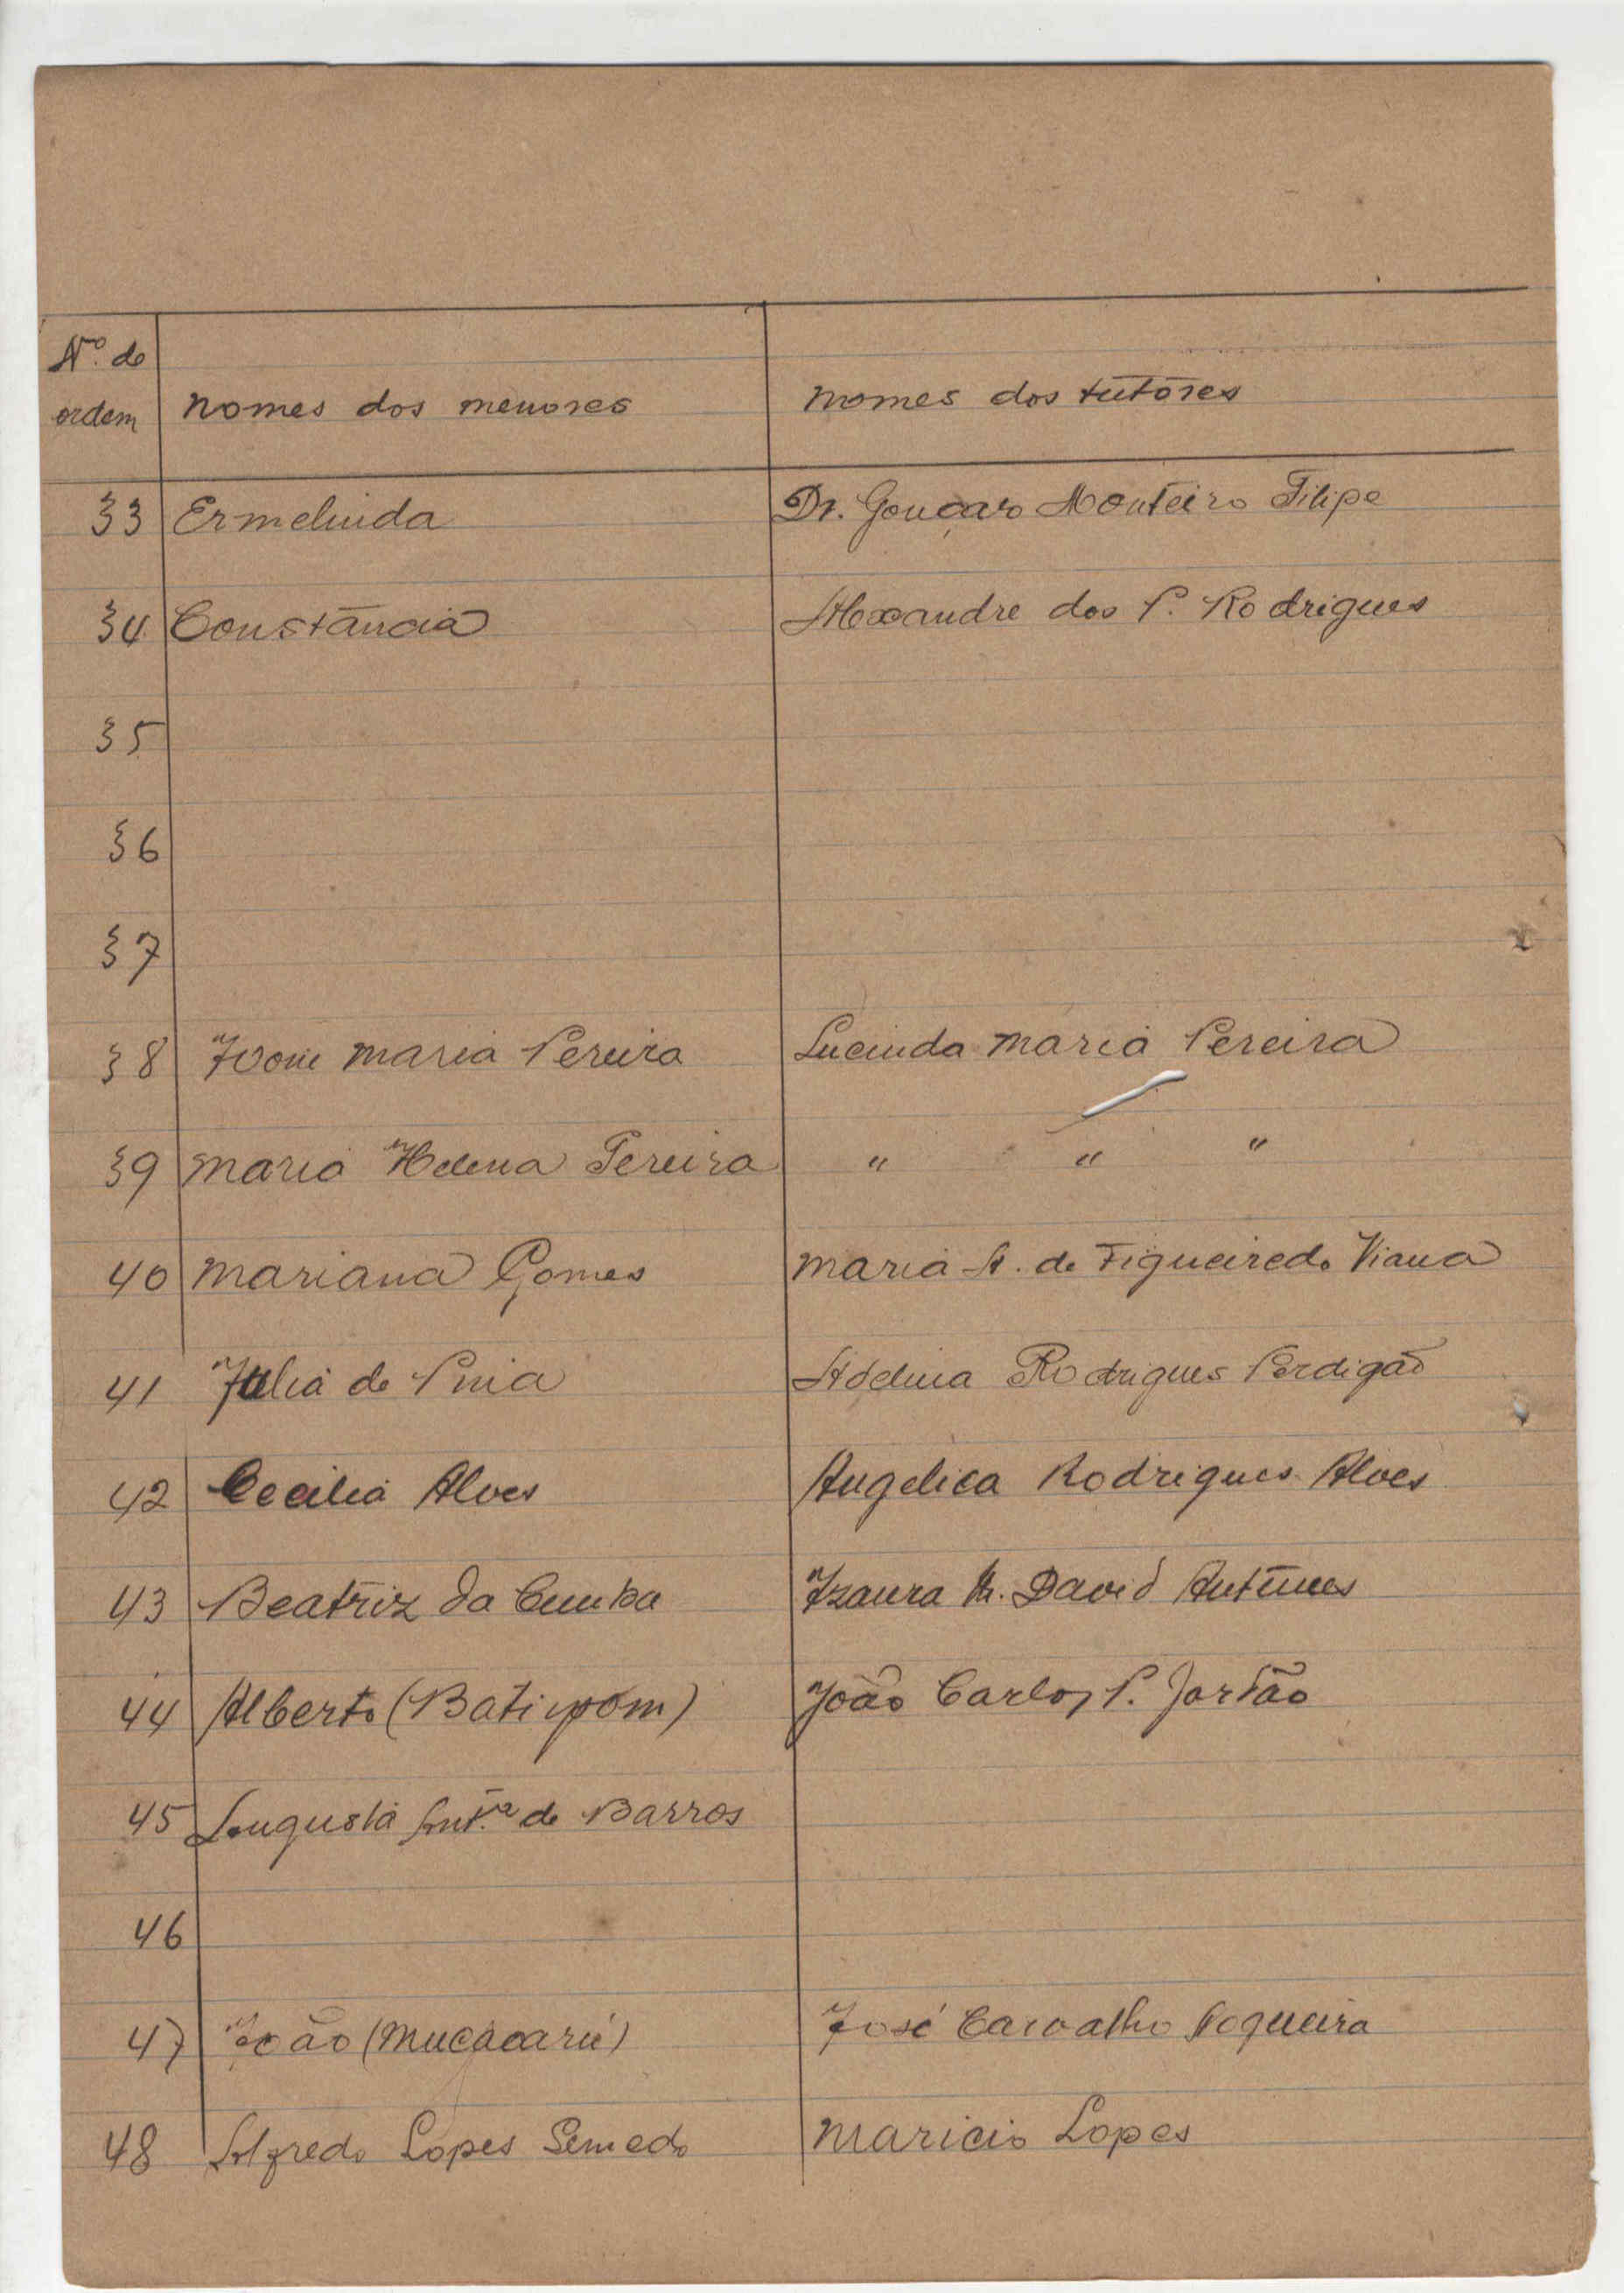 Nº de
ordem nomes dos menores nomes dos tutōres
33 Ermelinda Dr. Gonçaro Monteiro Filipe
34 Constāncia Alexandre dos P. Rodrigues
35
36
37
38 Ivoni maria Pereira Lucinda maria Pereira
39 maria Helena Pereira " " "
40 mariana Gomes maria A. de Figueiredo Viana
41 Julia de Pina Adelina Rodrigues Perdigão
42 Cecilia Alves Angelica Rodrigues Alves
43 Beatriz da Cunha Izaura M. David Antunes
44 Alberto (Batipom) João Carlos P. Jordão
45 Augusta Ant.ª de Barros
46
47 João (mucacarú) José Carvalho Nogueira
48 Alfredo Lopes Semedo Maricio Lopes